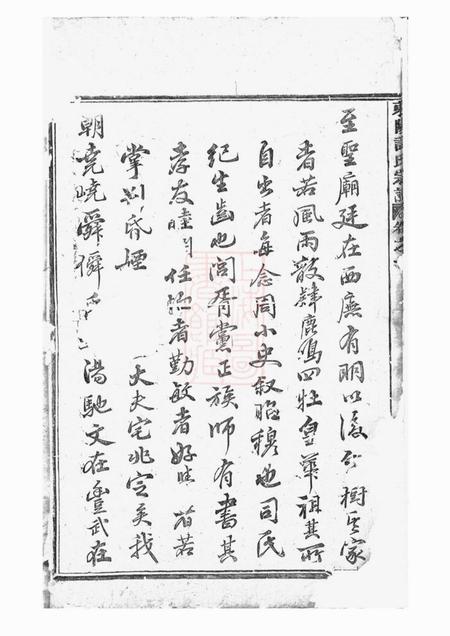 至聖廟廷在西廡有明以後 樹之家
者若風雨散肆鹿鳴四牡皇華祖其所
自出者每念周小史叙昭穆也司民
紀生齒也閭胥黨正族師有書其
孝友睦 任卹者勤敏者好 者若
掌判昏姻 大夫宅兆定矣我
朝堯 舜 湯馳文在豐武在
氏宗譜 卷之